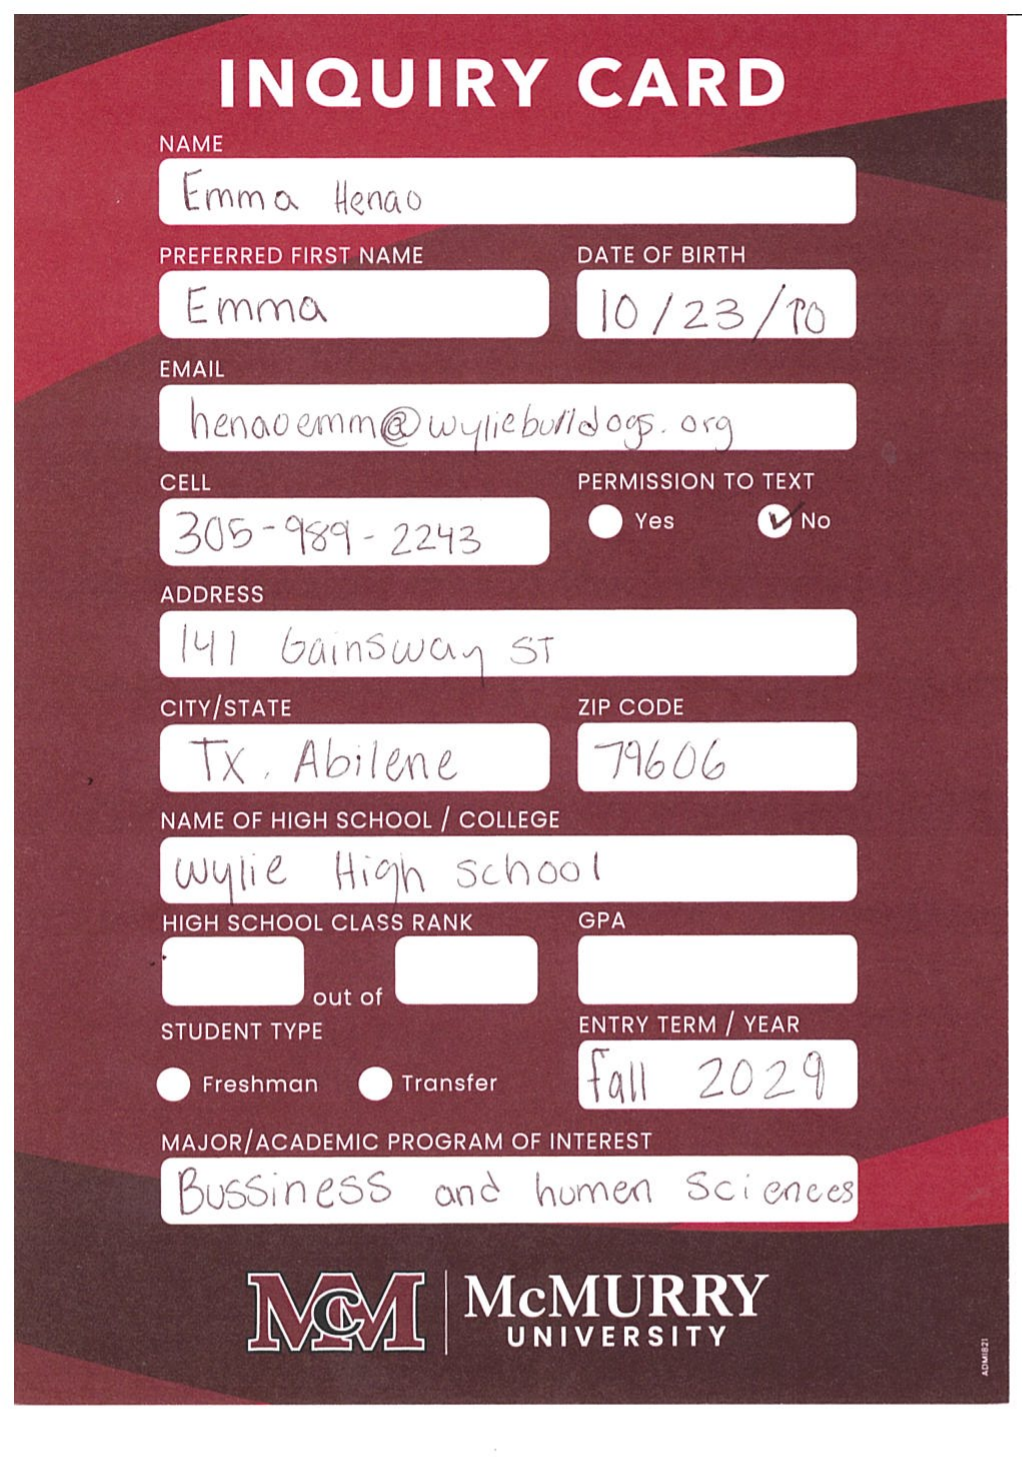 INQUIRY CARD
NAME
Emma Henao
PREFERRED FIRST NAME DATE OF BIRTH
Emma 10/23/10
EMAIL
henaoemm@wyliebulldogs.org
CELL PERMISSION TO TEXT
305-989-2243 Yes No
ADDRESS
141 Gainsway ST
CITY/STATE ZIP CODE
Tx. Abilene 79606
NAME OF HIGH SCHOOL / COLLEGE
Wylie High school
HIGH SCHOOL CLASS RANK GPA
out of
STUDENT TYPE ENTRY TERM / YEAR
Freshman Transfer fall 2029
MAJOR/ACADEMIC PROGRAM OF INTEREST
Bussiness and humen Sciences
McM McMURRY
UNIVERSITY
ADM1821